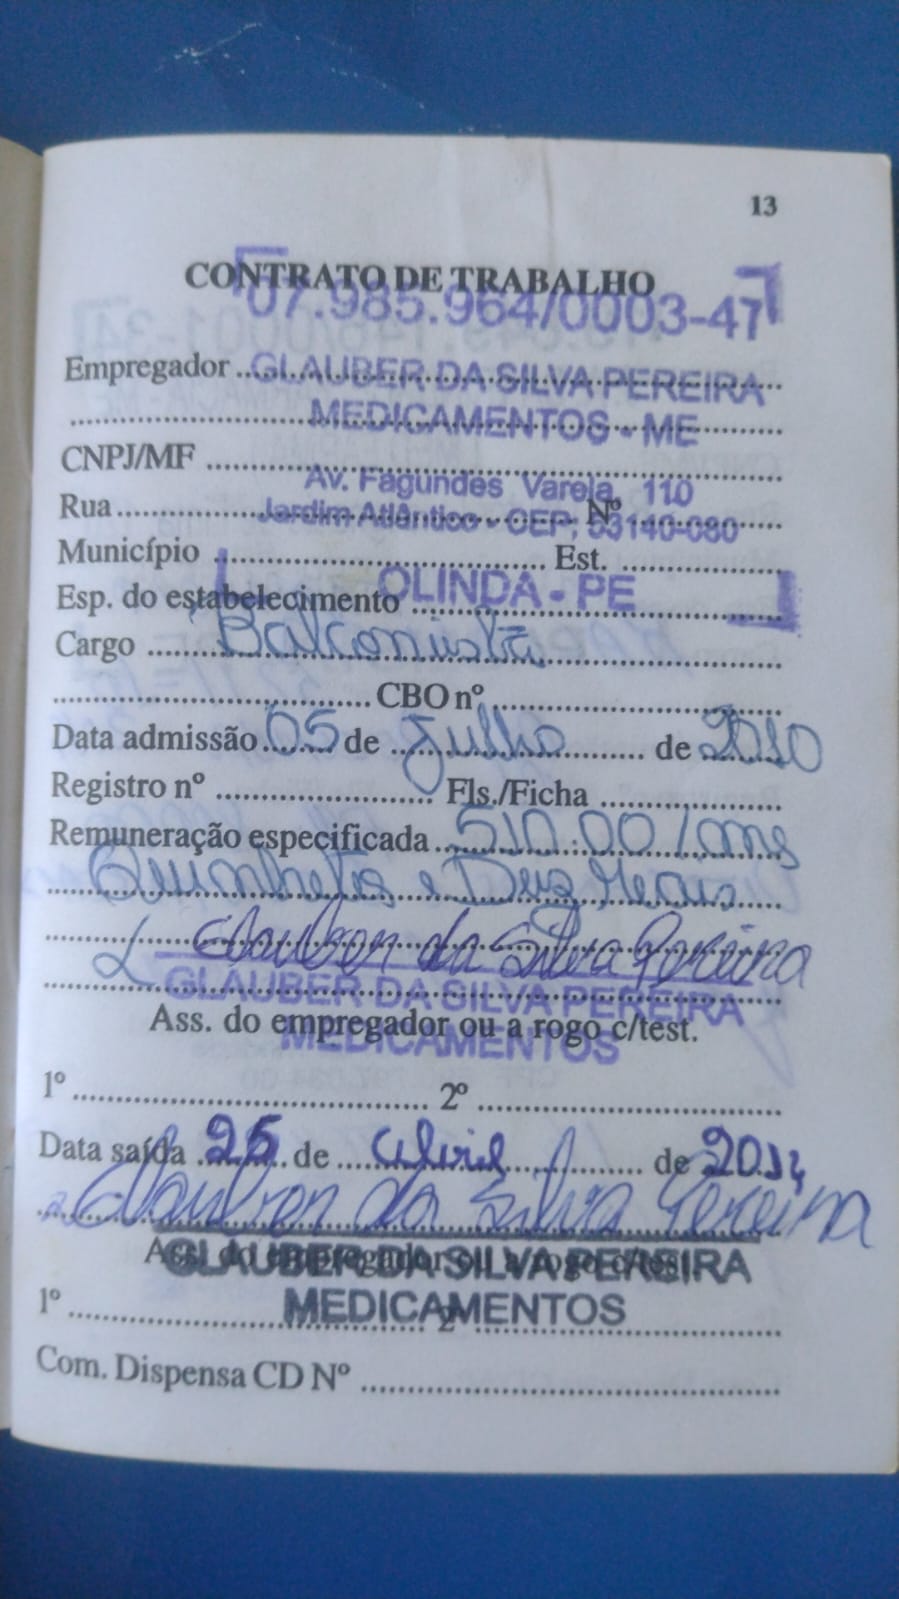 13
CONTRATO DE TRABALHO
07.985.964/0003-47
Empregador GLAUBER DA SILVA PEREIRA
MEDICAMENTOS - ME
CNPJ/MF
Av. Fagundes Varela, 110
Rua Nº
Jardim Atlântico - CEP; 53140-080
Município Est.
OLINDA - PE
Esp. do estabelecimento
Cargo Balconista
CBO nº
Data admissão 05 de Julho de 2010
Registro nº Fls./Ficha
Remuneração especificada 510,00 / mês
Quinhentos e Dez Reais
Glauber da Silva Pereira
GLAUBER DA SILVA PEREIRA
Ass. do empregador ou a rogo c/test.
MEDICAMENTOS
1º 2º
Data saída de Abril de
Glauber da Silva Pereira
Ass. do empregador ou a rogo c/test.
GLAUBER DA SILVA PEREIRA
MEDICAMENTOS
1º 2º
Com. Dispensa CD Nº